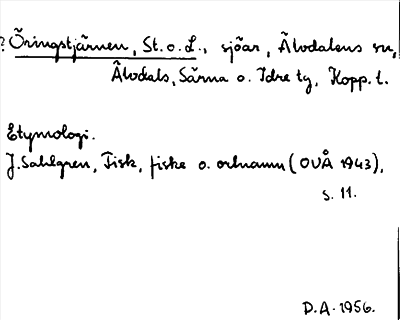 ? Öringstjärnen, St. o. L., sjöar, Älvdalens sn,
Älvdals, Särna o. Idre tg, Kopp. l.
Etymologi.
J. Sahlgren, Fisk, fiske o. ortnamn (OUÅ 1943),
s. 11.
D.A. 1956.